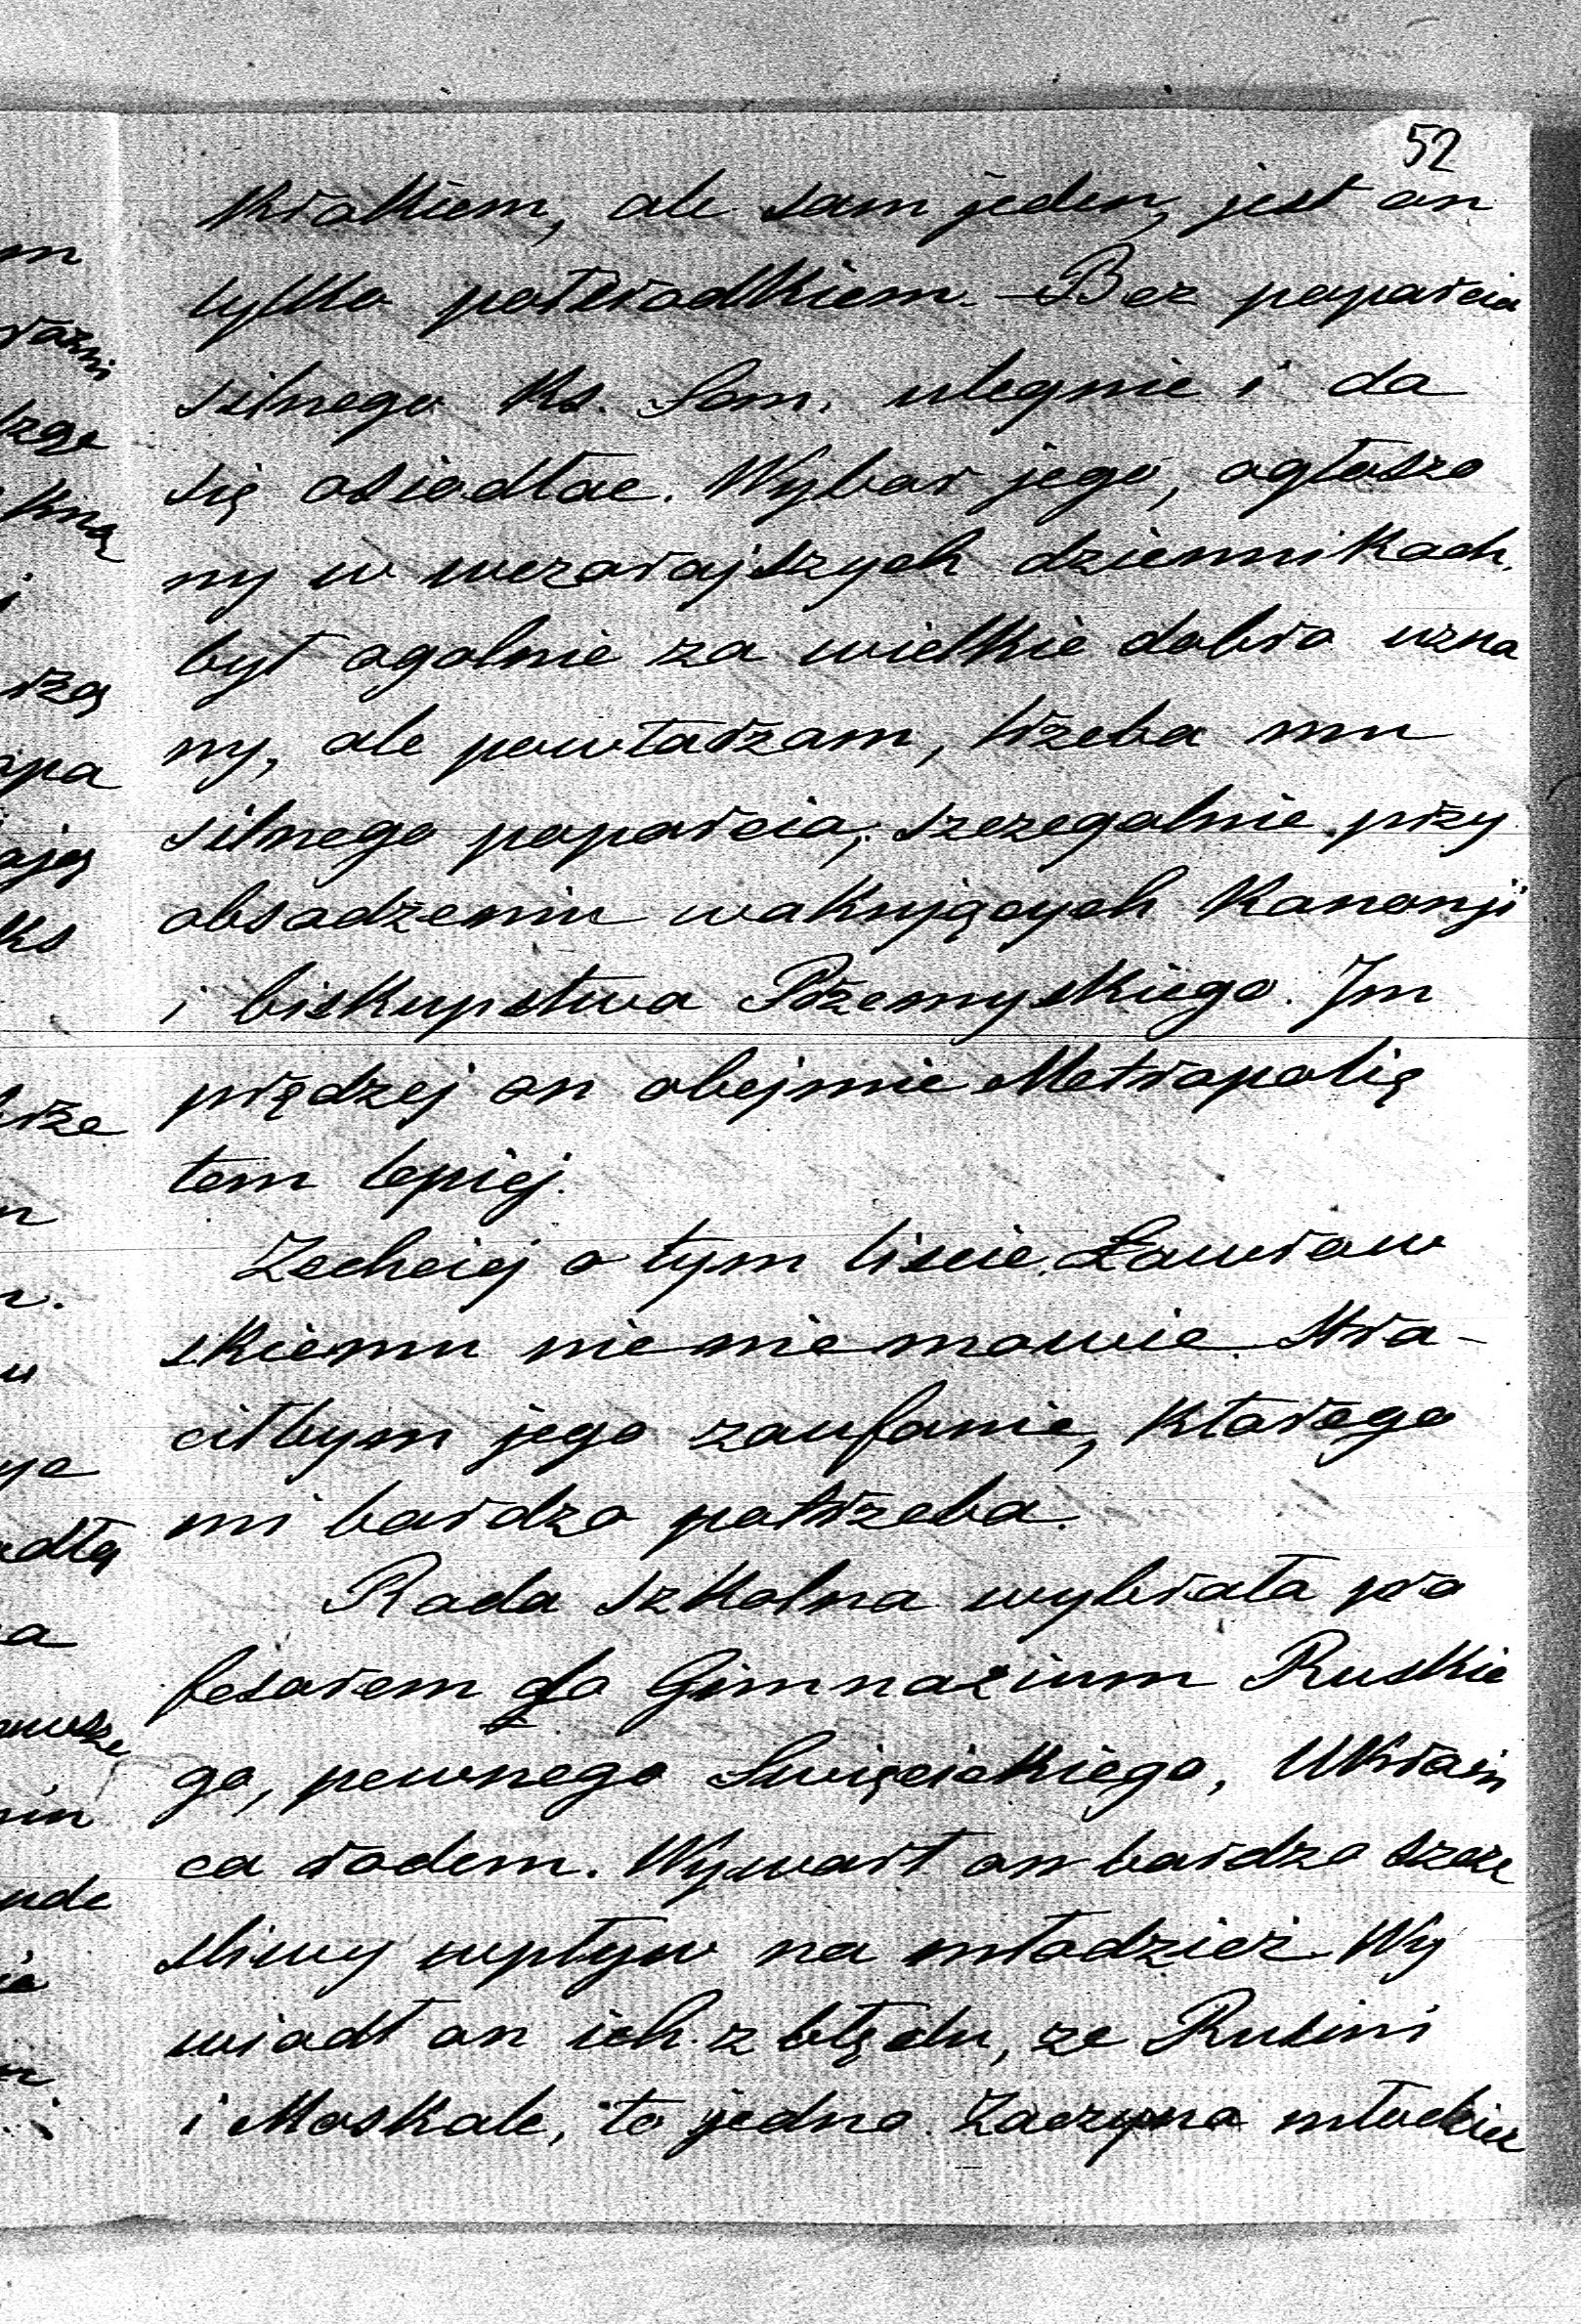 52
krokiem, ale sam jeden, jest on
tylko półśrodkiem. Bez poparcia
silnego Ks. Sem. ulegnie i da
się osiodłac. Wybor jego, ogłoszo
ny w wczorajszych dziennikach,
był ogolnie za wielkie dobro uzna
ny, ale powtarzam, trzeba mu
silnego poparcia, szczegolnie przy
obsadzeniu wakujących Kanonji
i biskupstwa Przemyskiego. Im
prędzej on obejmie Metropolię
tem lepiej.
Zechciej o tym liscie Ławrow
skiemu nic nie mowic. Stra-
ciłbym jego zaufanie, ktorego
mi bardzo potrzeba.
Rada szkolna wybrała pro
fesorem do Gimnazium Ruskie
go, pewnego Swięcickiego, Ukrain
ca rodem. Wywarł on bardzo szczę
sliwy wpływ na młodzież. Wy
wiodł on ich z błędu, ze Rusini
i Moskale, to jedno. Zaczyna młodzież